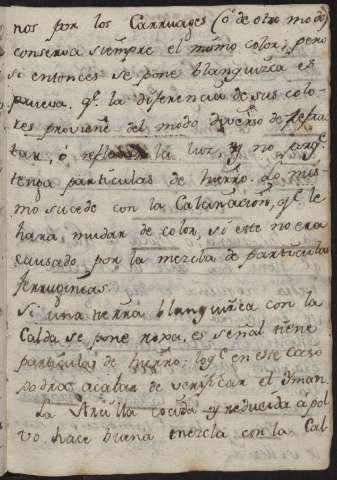 nos por los Carruages (ó de otro modo)
conserva siempre el mismo color; pero
si entonces se pone blanquizca es
prueva, qe. la diferencia de sus colo-
res proviene del modo diverso de refrac-
tar, ó la luz, y no porqe.
tenga particulas de hierro. Lo mis-
mo sucede con la Calcinacion, qe. le
hara mudar de color, si este no era
causado por la mezcla de particula
ferrugineas.
Si una tierra blanquizca con la
Calda se pone roxa, es señal tiene
particulas de hierro; lo qe. en este caso
podra acabar de verificar el Yman.
La Arcilla cocida y reducida á pol-
vo, hace buena mezcla con la Cal